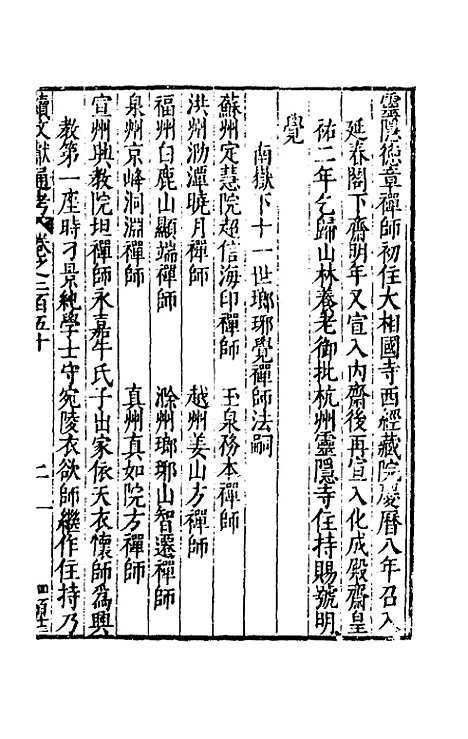 靈隱德章禪師初住大相國寺西經藏院慶曆八年召入
延春閣下齋明年又宣入內齋後再宣入化成殿齋皇
祐二年乞歸山林養老御批杭州靈隱寺住持賜號明
覺
南嶽下十一世瑯琊覺禪師法嗣
蘇州定慧院超信海印禪師 玉泉務本禪師
洪州泐潭曉月禪師 越州姜山方禪師
福州白鹿山顯端禪師 滁州瑯琊山智遷禪師
泉州凉峰洞淵禪師 真州真如院方禪師
宣州興教院坦禪師永嘉牛氏子出家依天衣懷師為興
教第一座時刁景純學士守宛陵衣欲師繼作住持乃
續文獻通考 卷之二百五十